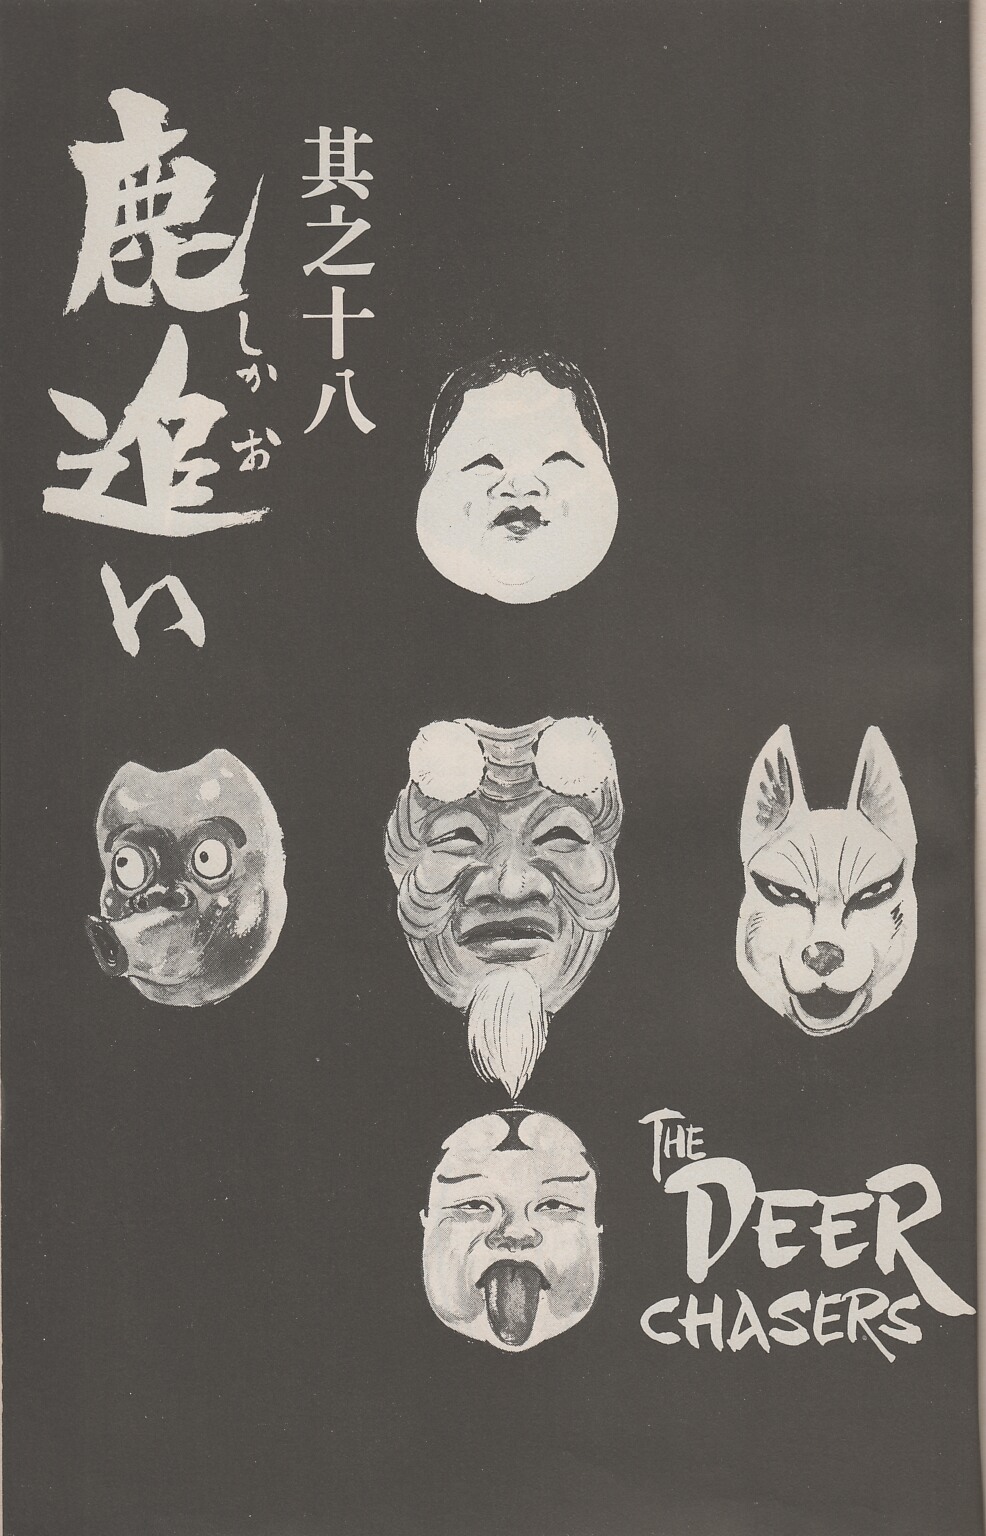 其之十八
鹿追い
しかお
THE
DEER
CHASERS